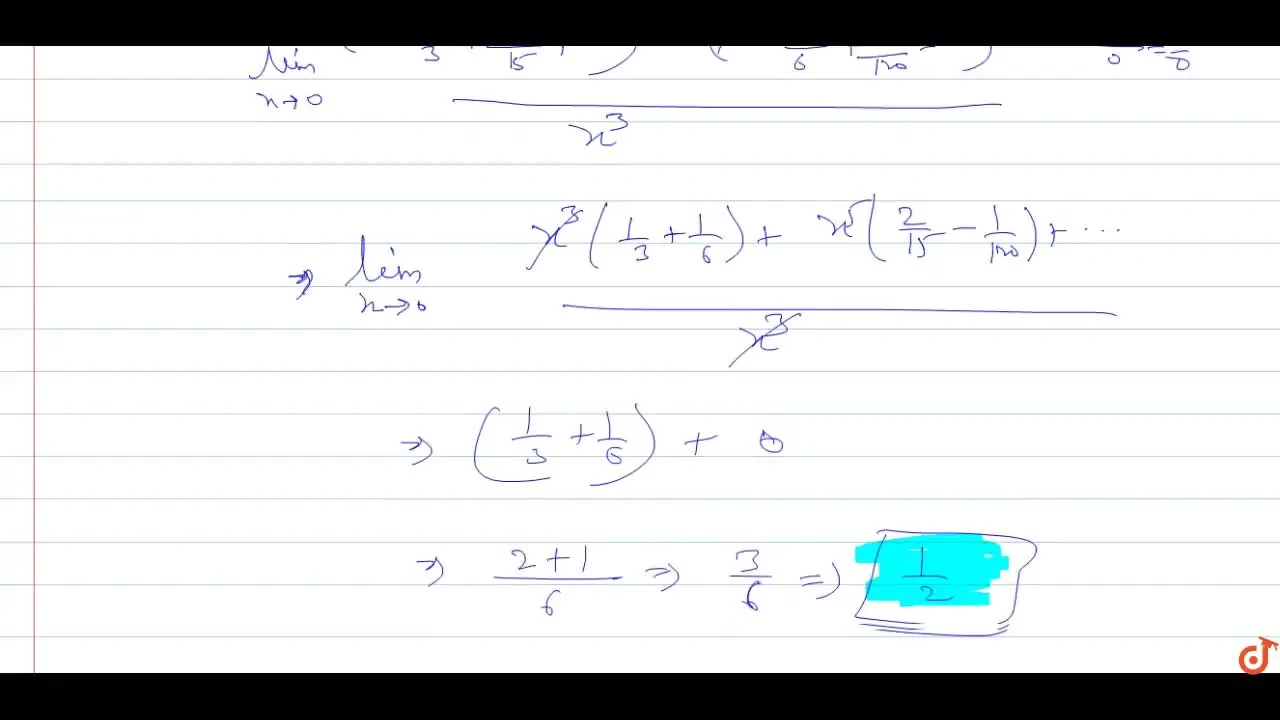 lim x→0 3 + 15 + ) ( 6 + 120 - ) 0 = 0
x³
⇒ lim x→0 x³(1/3 + 1/6) + x⁵(2/15 - 1/120) + ...
x³
⇒ (1/3 + 1/6) + 0
⇒ 2+1/6 ⇒ 3/6 ⇒ 1/2